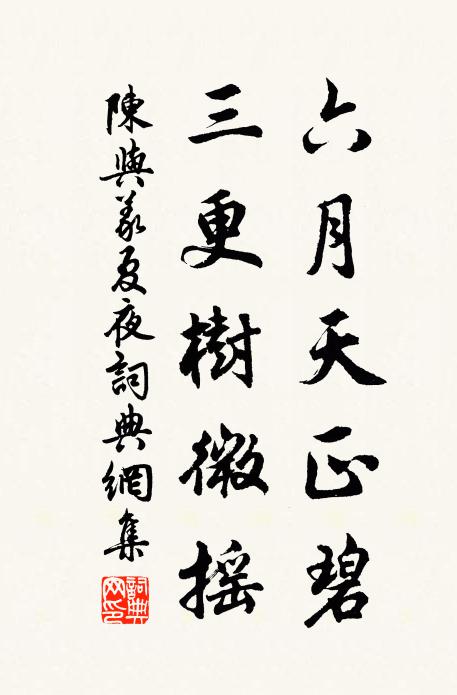 六月天正碧
三更樹微搖
陳與義夏夜詞典網集
詞典網印